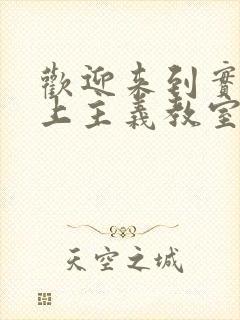 歡迎來到實
上主義教室
天空之城